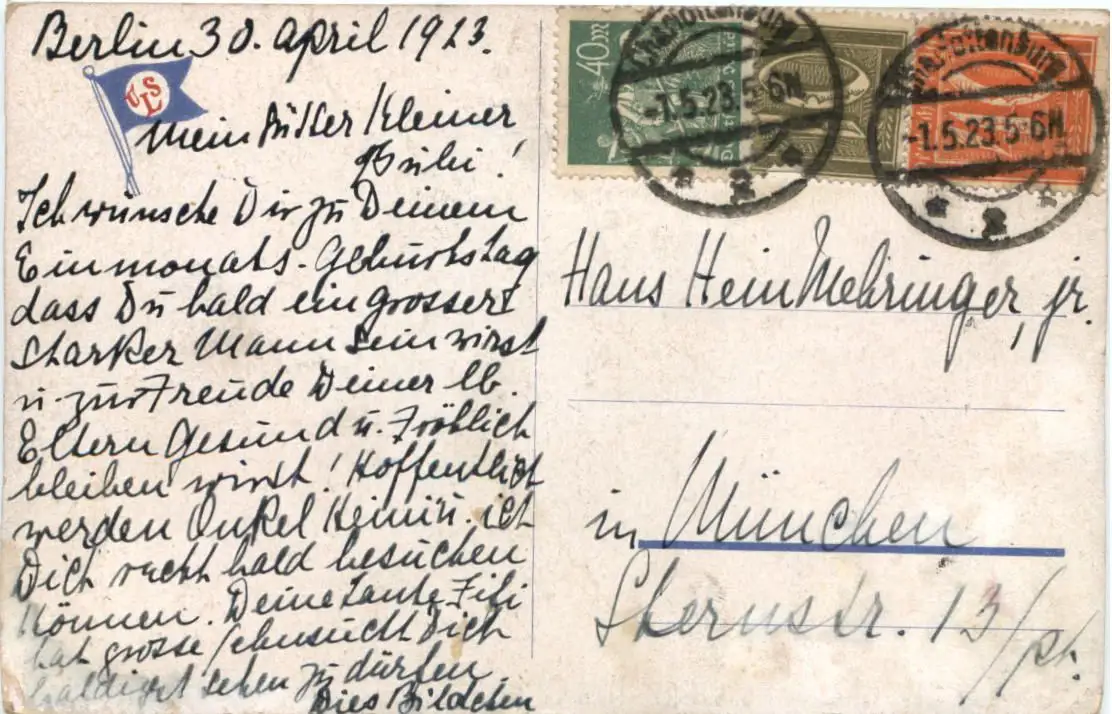 Berlin 30. April 1923.
USL
Mein süßer Kleiner
Bubi!
Ich wünsche Dir zu Deinem
Einmonats-Geburtstag
dass Du bald ein grosser
starker Mann sein wirst
u. zur Freude Deiner lb.
Eltern Gesund u. Fröhlich
bleiben wirst! Hoffentlich
werden Onkel Heini u. ich
Dich recht bald besuchen
können. Deine Tante Fifi
hat grosse Sehnsucht Dich
baldigst sehen zu dürfen
Dies Bildchen
40 M
Charlottenburg
-1.5.23. 5-6N.
* 2 *
Charlottenburg
-1.5.23. 5-6N.
* 2 *
Hans Hein Mehringer, jr.
in München
Sternstr. 13/pt.